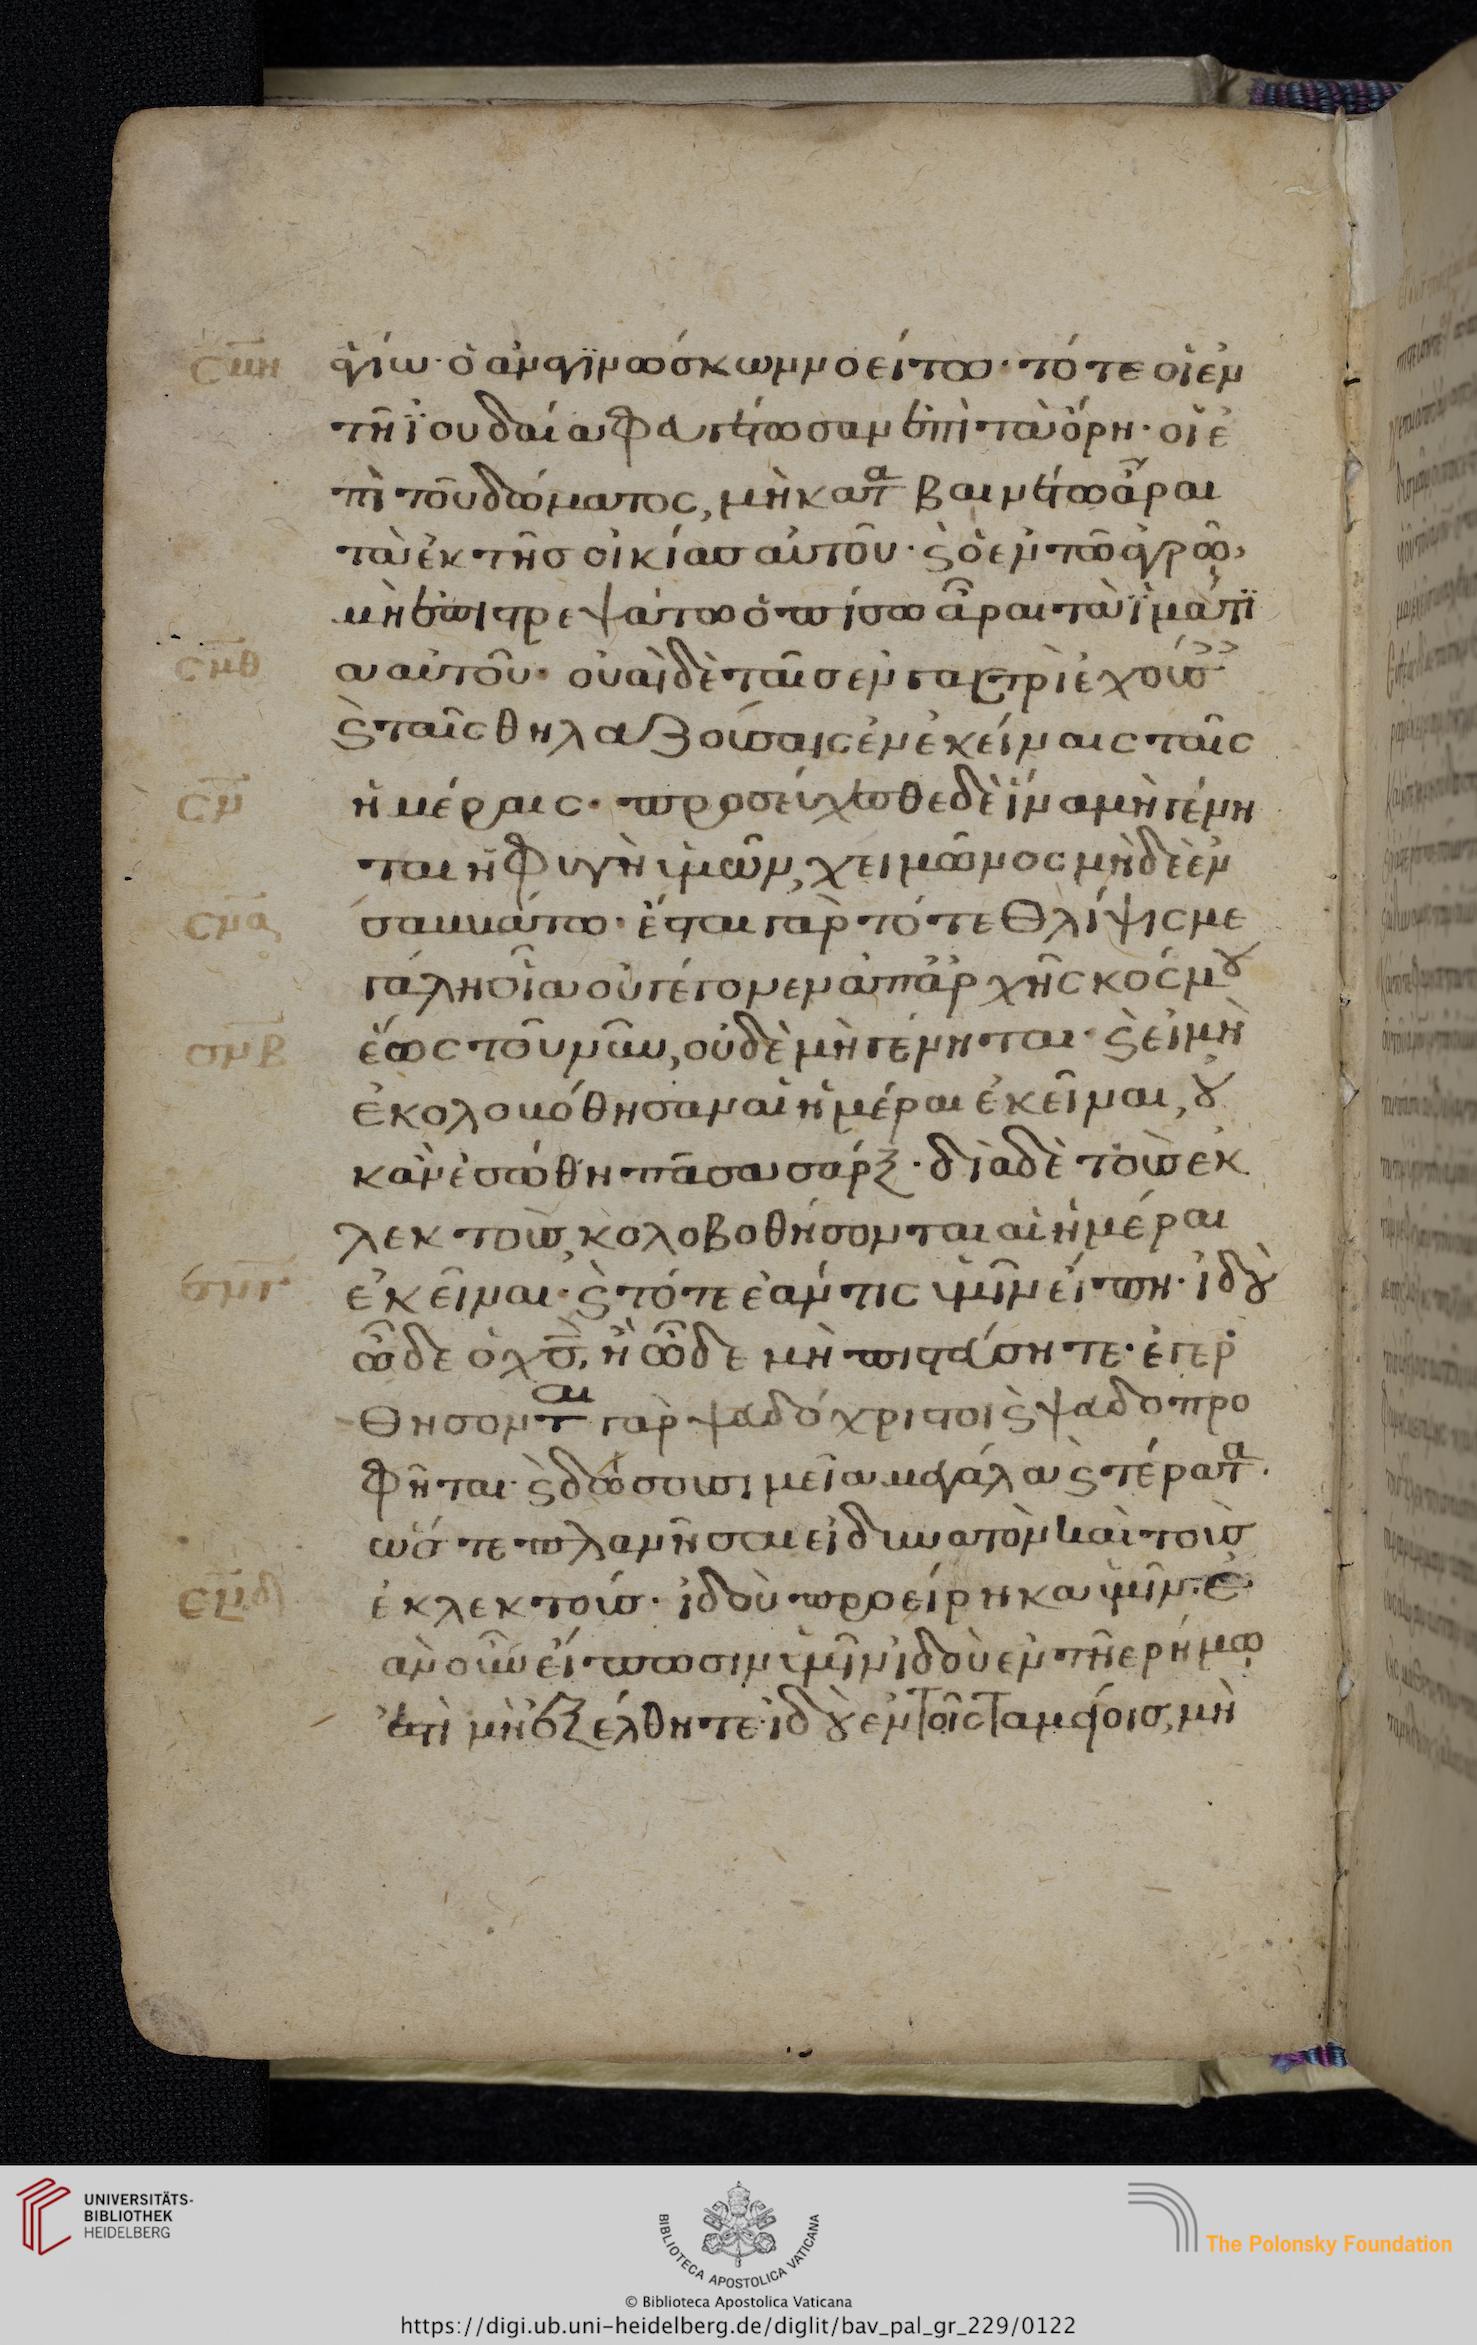 σμη
ἁγίω· ὁ ἀναγινώσκων νοείτω· τότε οἱ ἐν
τῆ ϊουδαία φευγέτωσαν ἐπὶ τὰ ὄρη· οἱ ἐ
πὶ τοῦ δώματος, μὴ καταβαινέτω ἆραι
τὰ ἐκ τῆς οἰκίας αὐτοῦ· ϗ ὁ ἐν τῶ ἀγρῶ,
μὴ ἐπιστρεψάτω ὀπίσω ἆραι τὰ ϊμάτϊ
σμθ
α αὐτοῦ· οὐαὶ δὲ ταῖς ἐν γαστρὶ ἐχούσαις
ϗ ταῖς θηλαζούσαις ἐν ἐκείναις ταῖς
σν
ἡμέραις· προσεύχεσθε δὲ ἵνα μὴ γένη
ται ἡ φυγὴ ὑμῶν, χειμῶνος μὴ δὲ ἐν
σνα
σαββάτω· ἔσται γὰρ τότε θλίψις με
γάλη οἵα οὐ γέγονεν ἀπ ἀρχῆς κόσμου
σνβ
ἕως τοῦ νῦν, οὐδὲ μὴ γένηται· ϗ εἰ μὴ
ἐκολοβόθησαν αἱ ἡμέραι ἐκεῖναι, οὐ
κ ἂν ἐσώθη πᾶσα σάρξ· διὰ δὲ τοὺς ἐκ
λεκτοὺς, κολοβοθήσονται αἱ ἡμέραι
σνγ
ἐκεῖναι· ϗ τότε ἐάν τις ὑμῖν εἴπη· ἰδοὺ
ὧδε ὁ χς, ἢ ὧδε μὴ πιστεύσητε· ἐγερ
θήσονται γὰρ ψευδόχριστοι ϗ ψευδοπρο
φῆται· ϗ δώσουσι, σημεῖα μεγάλα ϗ τέρατα·
ὥστε πλανῆσαι εἰ δυνατὸν καὶ τοὺς
σνδ
ἐκλεκτούς· ἰδοὺ προείρηκα ὑμῖν· ἐ
ὰν οὖν εἴπωσιν ὑμῖν ἰδοὺ ἐν τῆ ερήμω
ἐστὶ μὴ ἐξέλθητε· ἰδοὺ ἐν τοῖς ταμείοις, μὴ
UNIVERSITÄTS-
BIBLIOTHEK
HEIDELBERG
BIBLIOTECA APOSTOLICA VATICANA
The Polonsky Foundation
© Biblioteca Apostolica Vaticana
https://digi.ub.uni-heidelberg.de/diglit/bav_pal_gr_229/0122